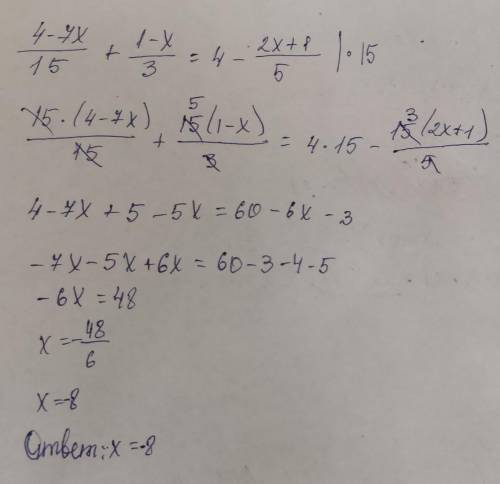 (4-7x)/15 + (1-x)/3 = 4 - (2x+1)/5 |·15
15·(4-7x)/15 + 15(1-x)/3 = 4·15 - 15(2x+1)/5
5 3
4-7x+5-5x=60-6x-3
-7x-5x+6x=60-3-4-5
-6x=48
x=-48/6
x=-8
Ответ: x=-8